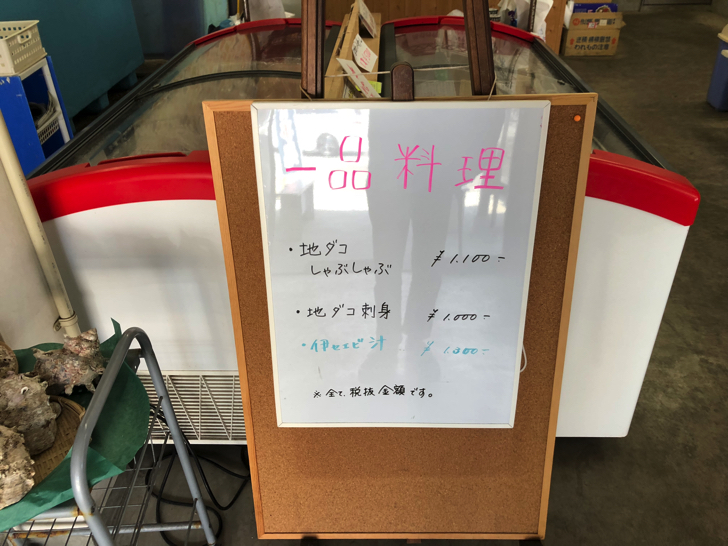 一品料理
・地ダコ
しゃぶしゃぶ ¥1.100-
・地ダコ刺身 ¥1.000-
・伊セエビ汁 ¥1.300-
※全て、税抜金額です。